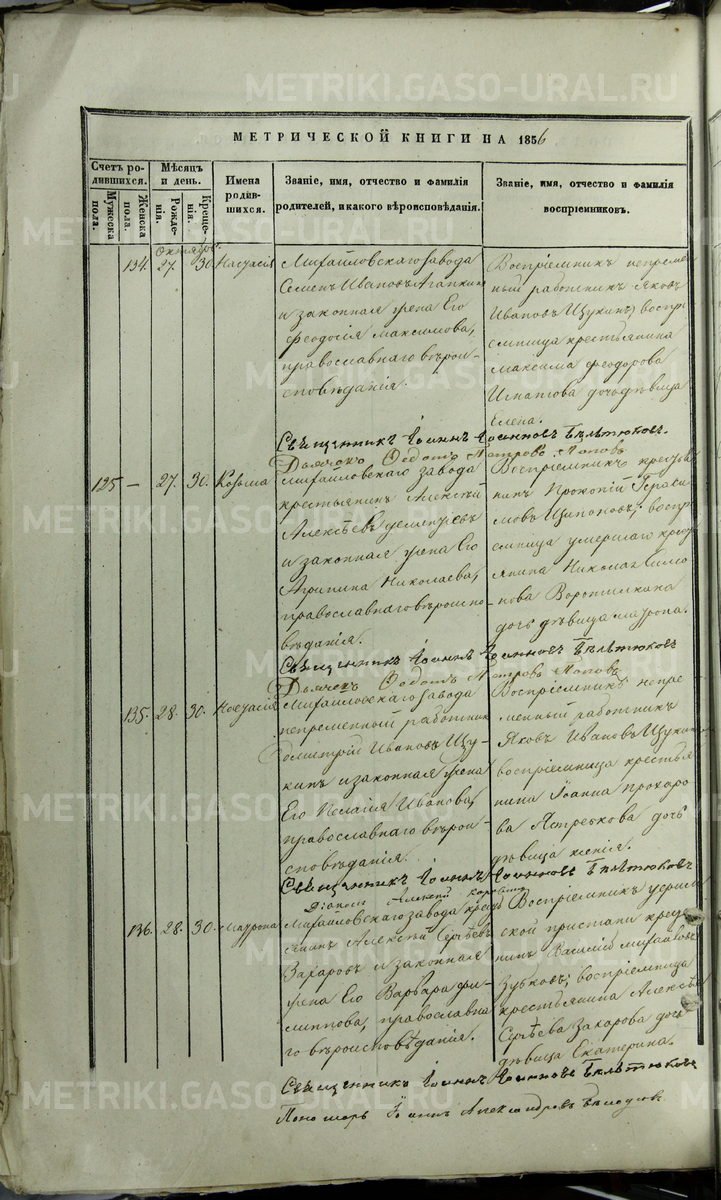 METRIKI.GASO-URAL.RU
МЕТРИЧЕСКОЙ КНИГИ НА 1856
Счетъ родившихся.
Мужеска пола.
Женска пола.
Мѣсяцъ и день.
Рожденія.
Крещенія.
Имена родившихся.
Званіе, имя, отчество и фамилія
родителей, и какого вѣроисповѣданія.
Званіе, имя, отчество и фамилія
воспріемниковъ.
Октябрь
134. 27. 30. Настасія
Михайловскаго завода
Семенъ Ивановъ Агапкинъ
и законная жена Его
Феодосія Максимова,
православнаго вѣрои-
сповѣданія.
Воспріемникъ непреме-
ный работникъ Яковъ
Ивановъ Щукинъ воспрі-
емница крестьянина
Максима Феодорова
Игнатова дочь дѣвица
Елена.
Священникъ Іоаннъ Іоанновъ Бѣлѣтюковъ.
Дьячекъ Ѳедотъ Петровъ Поповъ
125 — 27. 30. Козьма
Михайловскаго завода
крестьянинъ Алексѣй
Алексѣевъ
и законная жена Его
Агрипина Николаева,
православнаго вѣроиспо-
вѣданія.
Воспріемникъ крестья-
нинъ Прокопій Гераси-
мовъ воспрі-
емница умершаго крест-
янина Николая
дочь дѣвица Мавропа.
Священникъ Іоаннъ Іоанновъ Бѣлѣтюковъ
Дьячекъ Ѳедотъ Петровъ Поповъ
135. 28. 30. Настасія
Михайловскаго завода
непременный работникъ
Димитрій Ивановъ Щу-
кинъ и законная жена
Его Пелагія Иванова,
православнаго вѣрои-
сповѣданія.
Воспріемникъ непре-
менный работникъ
Яковъ Ивановъ Щукинъ
воспріемница крестья-
нина Іоанна Прохоро-
ва Ястребкова дочь
дѣвица Ксенія.
Священникъ Іоаннъ Іоанновъ Бѣлѣтюковъ
Діаконъ Алексей
136. 28. 30. Маврона
Михайловскаго завода крест-
янинъ Алексѣй Сергѣевъ
Захаровъ и законная
жена Его Варвара Фи-
липпова, православна-
го вѣроисповѣданія.
Воспріемникъ
ской пристани кресть-
нинъ Василій Михайловъ
Зубковъ; воспріемница
крестьянина Алексѣя
Сергѣева Захарова дочь
дѣвица Екатерина.
Священникъ Іоаннъ Іоанновъ Бѣлѣтюковъ
Пономарь Іоаннъ Александровъ